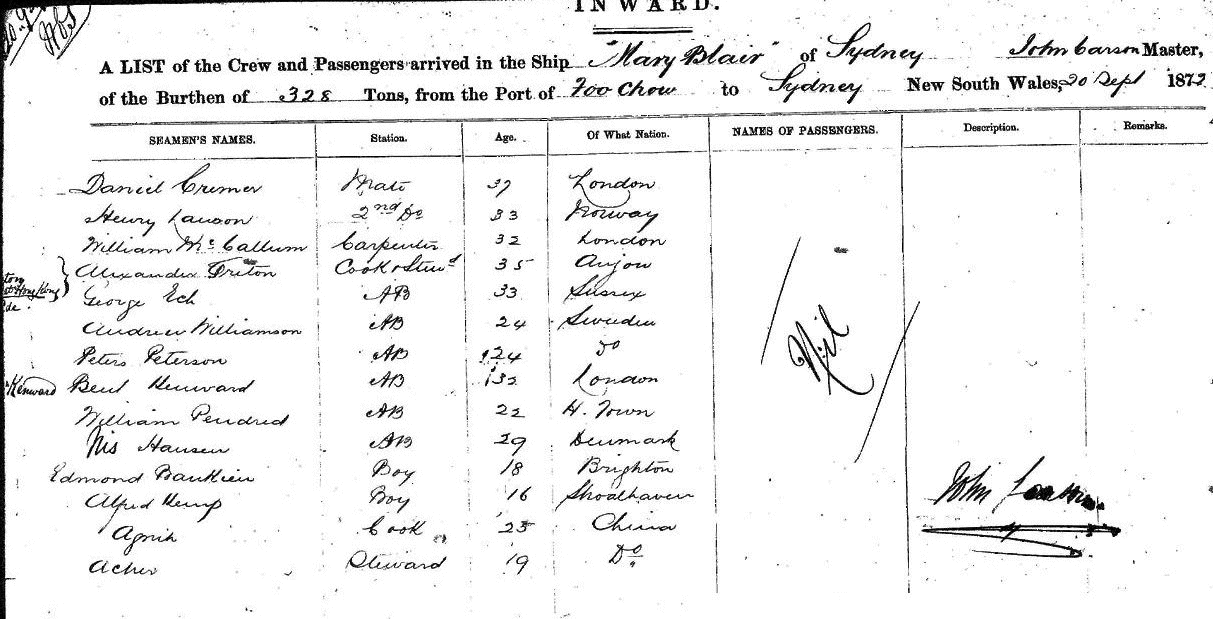 INWARD.
A LIST of the Crew and Passengers arrived in the Ship "Mary Blair" of Sydney John Carson Master,
of the Burthen of 328 Tons, from the Port of Foo Chow to Sydney New South Wales, 20 Sept 1872
SEAMEN'S NAMES. Station. Age. Of What Nation. NAMES OF PASSENGERS. Description. Remarks.
Daniel Cremer Mate 37 London
Henry Lawson 2nd Do 33 Norway
William McCallum Carpenter 32 London
Alexander Friton Cook & Stewd 35 Anjou
George Ech AB 33 Sussex
Andrew Williamson AB 24 Sweden
Peters Peterson AB 24 Do
Kenward Bent Henward AB 32 London
William Pendred AB 22 H. Town
Nis Hansen AB 29 Denmark
Edmond Boy 18 Brighton
Alfred Hemp Boy 16 Shoalhaven
Cook 25 China
Acher Steward 19 Do
Nil
John Carson